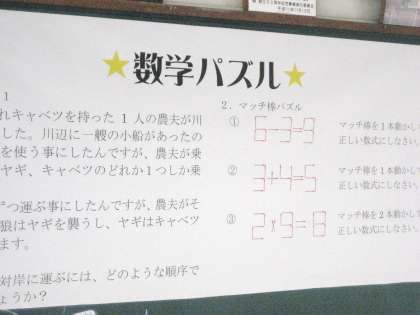 ★数学パズル★
1
れキャベツを持った 1 人の農夫が川
した。川辺に一艘の小船があったの
を使う事にしたんですが、農夫が乗
ヤギ、キャベツのどれか 1 つしか乗
ずつ運ぶ事にしたんですが、農夫がそ
狼はヤギを襲うし、ヤギはキャベツ
ます。
対岸に運ぶには、どのような順序で
ょうか？
2．マッチ棒パズル
① 6-3=9 マッチ棒を 1 本動かし
正しい数式にしなさい。
② 3+4=5 マッチ棒を 1 本動かし
正しい数式にしなさい。
③ 2 9= 8 マッチ棒を 2 本動かし
正しい数式にしなさい。